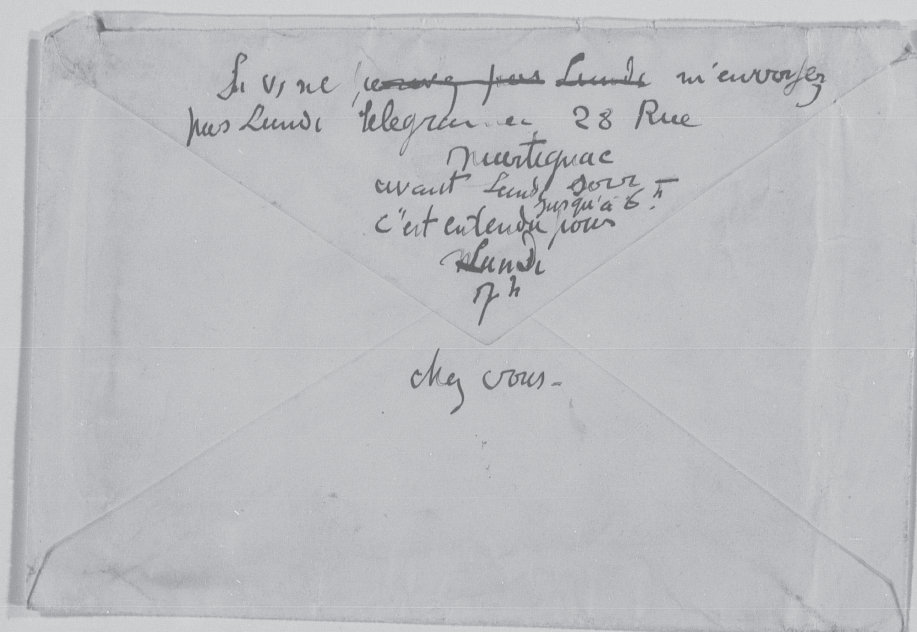 Si vs ne pouvez pas Lundi m'envoyez
pas Lundi telegramme, 28 Rue
Martignac
avant Lundi soir –
jusqu'à 6h.
c'est entendu pour
Lundi
7h
chez vous –